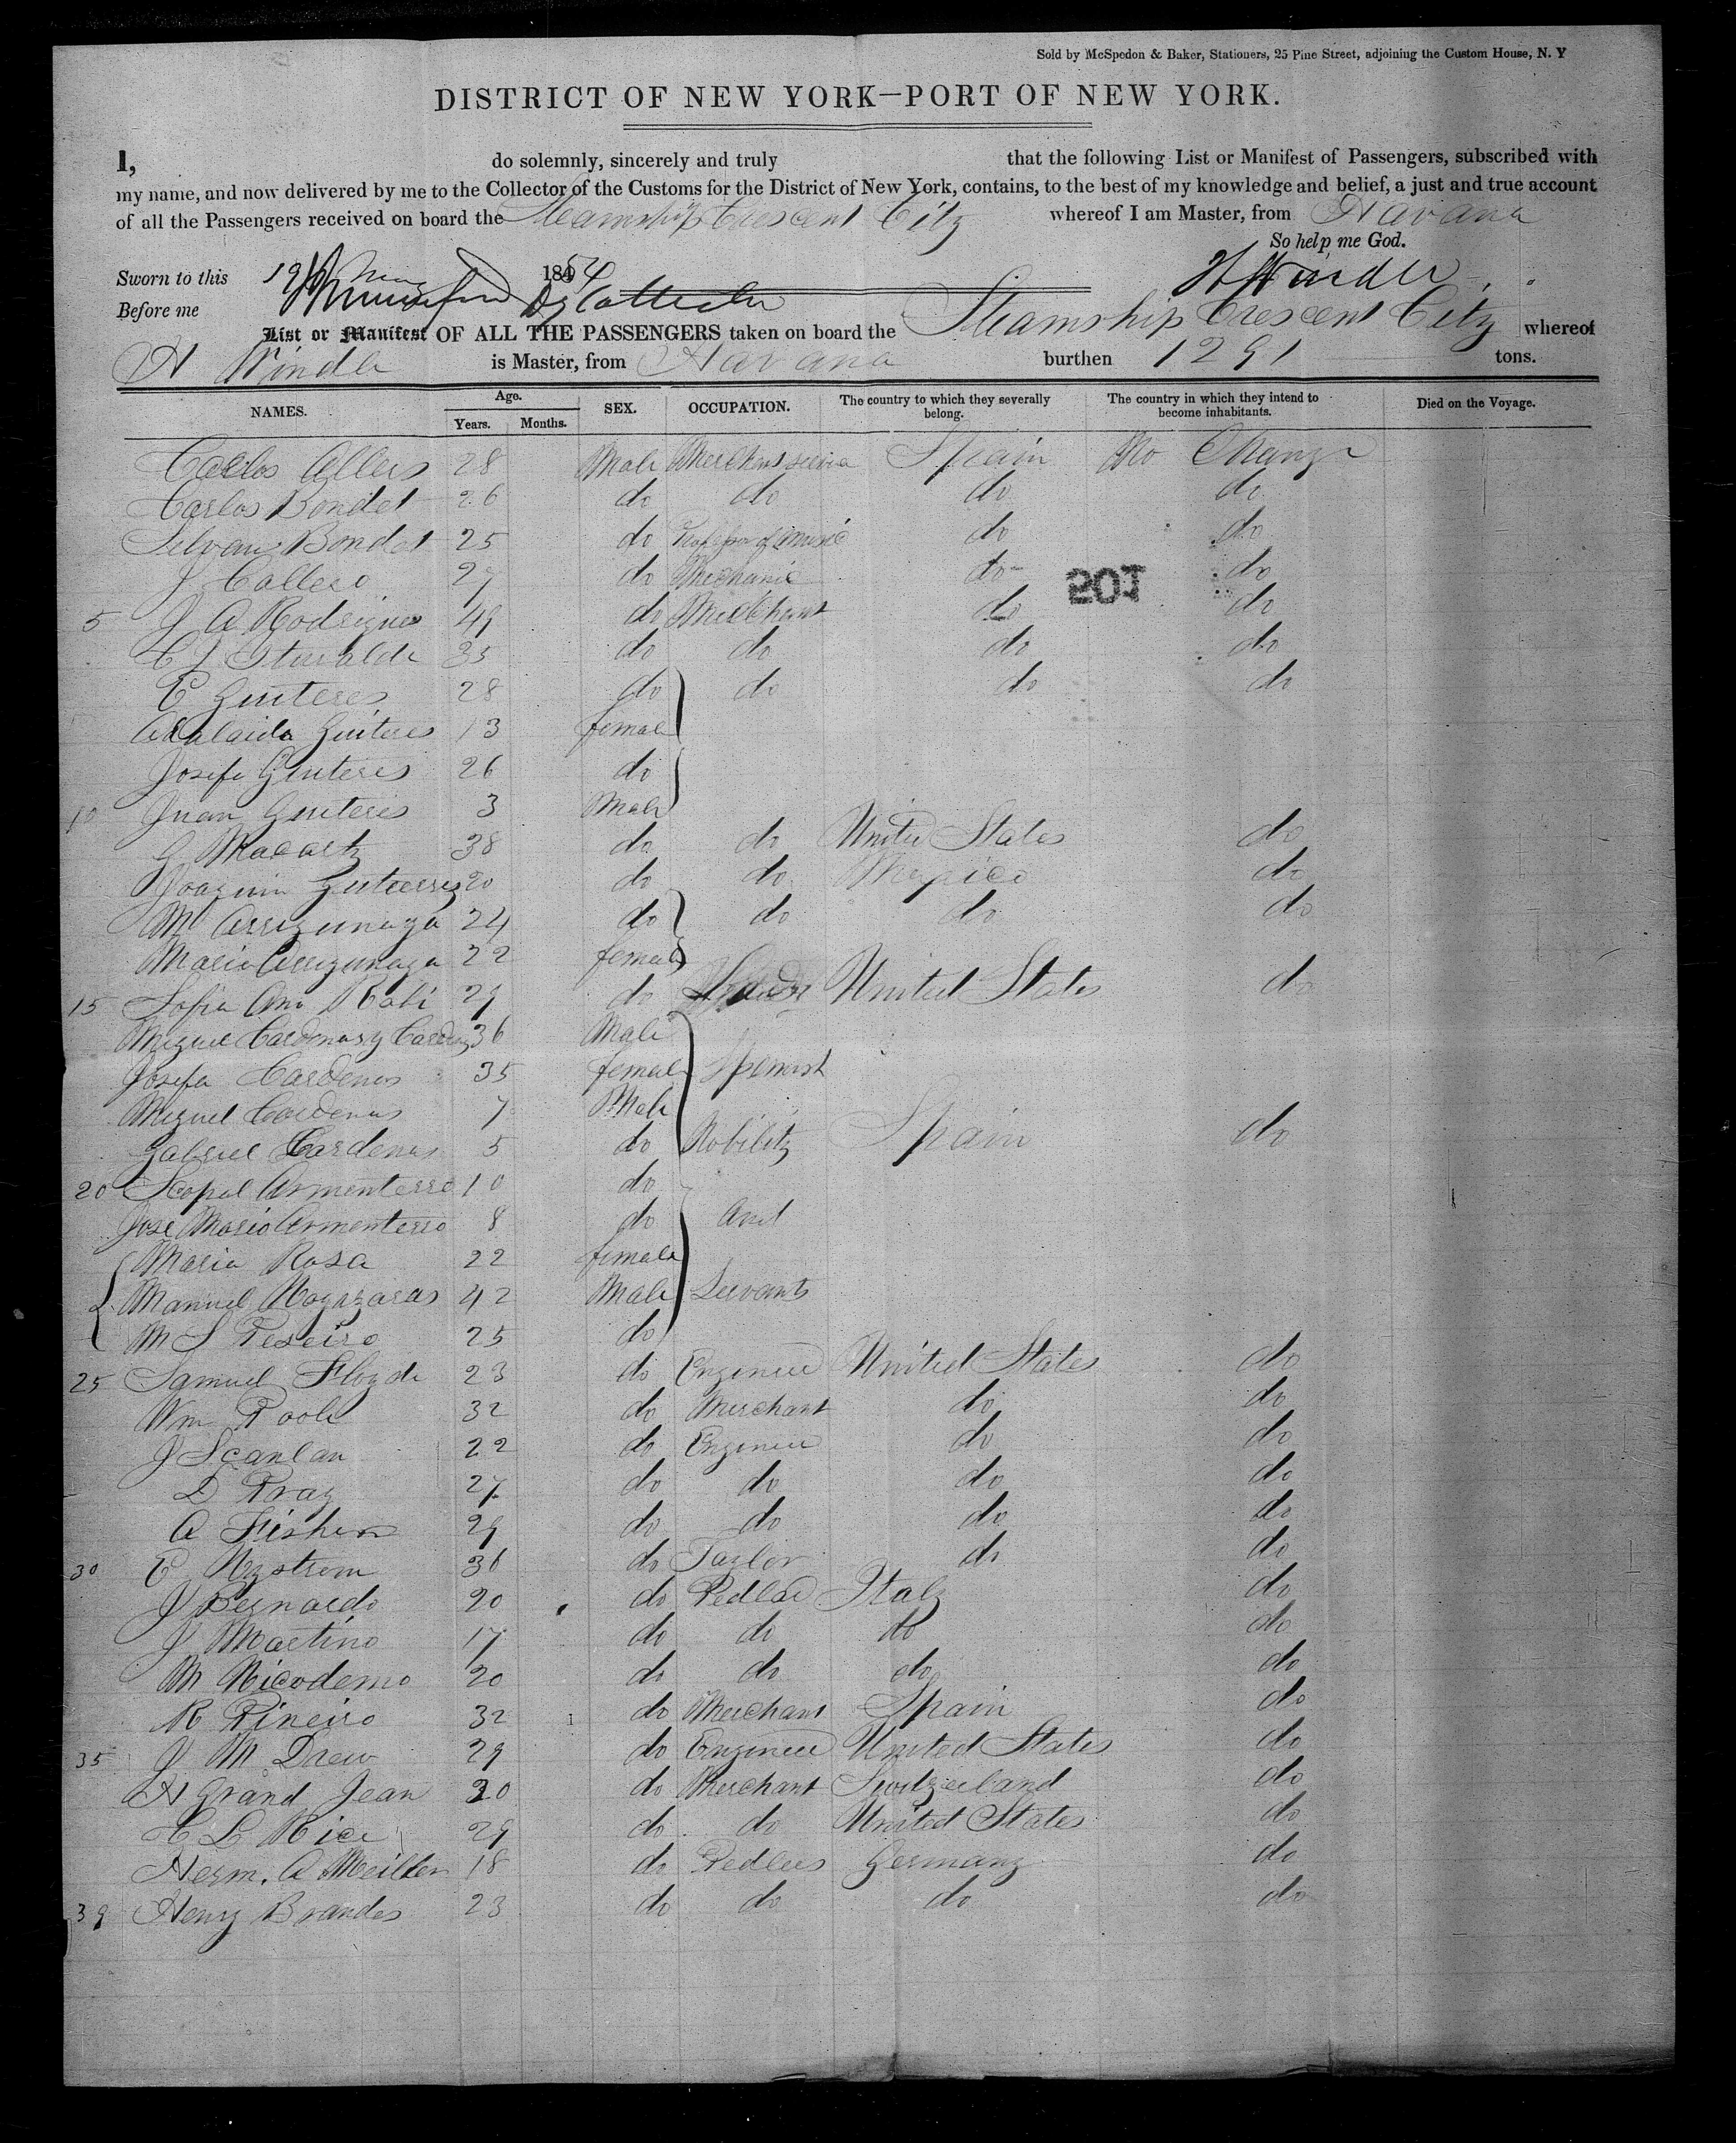 Sold by McSpedon & Baker, Stationers, 25 Pine Street, adjoining the Custom House, N. Y
DISTRICT OF NEW YORK—PORT OF NEW YORK.
I, do solemnly, sincerely and truly that the following List or Manifest of Passengers, subscribed with
my name, and now delivered by me to the Collector of the Customs for the District of New York, contains, to the best of my knowledge and belief, a just and true account
of all the Passengers received on board the Steamship Crescent City whereof I am Master, from Havana
So help me God.
Sworn to this 19 1854 H Windle
Before me Dy Collector
List or Manifest OF ALL THE PASSENGERS taken on board the Steamship Crescent City whereof
H Windle is Master, from Havana burthen 1291 tons.
NAMES. Age. Years. Months. SEX. OCCUPATION. The country to which they severally belong. The country in which they intend to become inhabitants. Died on the Voyage.
Carlos Allers 28 Male Merchant Spain No Change
Carlos Bondet 26 do do do do
Silvain Bondet 25 do Professor of Music do do
J Callero 27 do Mechanic do do
201
5 J A Rodrigues 49 do Merchant do do
C J 35 do do do do
C Guiteres 28 do do do do
Adalaida Guiteres 13 female
Josefa Guiteres 26 do
10 Juan Guiteris 3 Male
G 38 do do United States do
Joaquin Gutierrez 20 do do Mexico do
M Arrigunaga 24 do do do do
Maria Arrigunaga 22 female
15 Sofia Ana Rabi 29 do United States do
Miguel Cardenas y 36 Male
Josefa Cardenas 35 female Spanish
Miguel Cardenas 7 Male
Gabriel Cardenas 5 do Nobility Spain do
20 Armenterro 10 do
Jose Maria Armenterro 8 do And
Maria Rosa 22 female
Manuel 42 Male Servants
M S Peseiro 25 do
25 Samuel Floyde 23 do Engineer United States do
Wm Poole 32 do Merchant do do
J Scanlan 22 do Engineer do do
D Pray 27 do do do do
A Fisher 29 do do do do
30 C Nystrom 36 do Taylor do do
J Bernardo 20 do Pedlar Italy do
J Martino 17 do do do do
M Nicodemo 20 do do do do
R Pineiro 32 do Merchant Spain do
35 J M Drew 29 do Engineer United States do
H Grand Jean 30 do Merchant Switzerland do
C L Rice 29 do do United States do
Herm. A 18 do Pedlers Germany do
39 Henry Brandes 23 do do do do